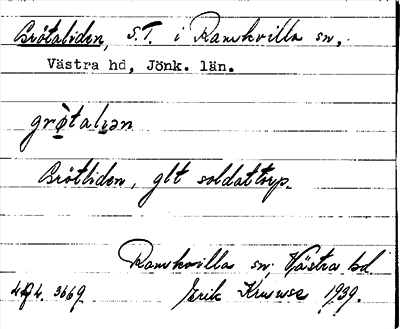 Brötaliden, S.T. i Ramkvilla sn,
Västra hd, Jönk. län.
grø̀talıən
Brötliden, glt soldattorp.
Ramkvilla sn, Västra hd.
3669 Erik Kruuse 1939.